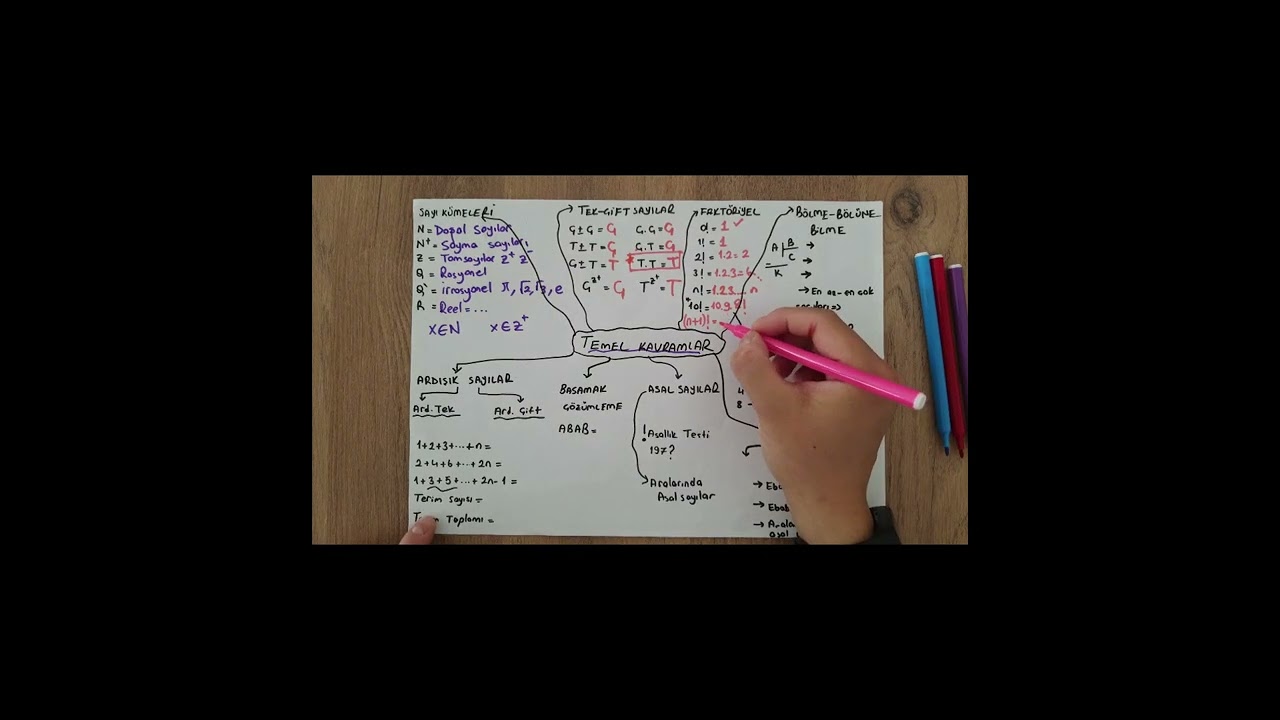 SAYI KÜMELERİ
N = Doğal Sayılar
N⁺ = Sayma sayıları
Z = Tamsayılar Z⁺ Z⁻
Q = Rasyonel
Q' = irrasyonel π, √2, √3, e
R = Reel = ...
x∈N x∈Z⁺
TEK-ÇİFT SAYILAR
Ç ± Ç = Ç Ç.Ç = Ç
T ± T = Ç Ç.T = Ç
Ç ± T = T T.T = T
Ç^Z⁺ = Ç T^Z⁺ = T
FAKTÖRİYEL
0! = 1 ✓
1! = 1
2! = 1.2 = 2
3! = 1.2.3 = 6
n! = 1.2.3.... n
*10! = 10.9.8!
(n+1)! =
BÖLME-BÖLÜNE
BİLME
A | B
C
K
→ En az-en çok
TEMEL KAVRAMLAR
ARDIŞIK SAYILAR
Ard. Tek Ard. Çift
1+2+3+...+n =
2+4+6+...+2n =
1+3+5+...+2n-1 =
Terim sayısı =
Toplamı =
BASAMAK
ÇÖZÜMLEME
ABAB =
ASAL SAYILAR
! Asallık Testi
197?
Aralarında
Asal sayılar
4
8 -
→
→
→
asal